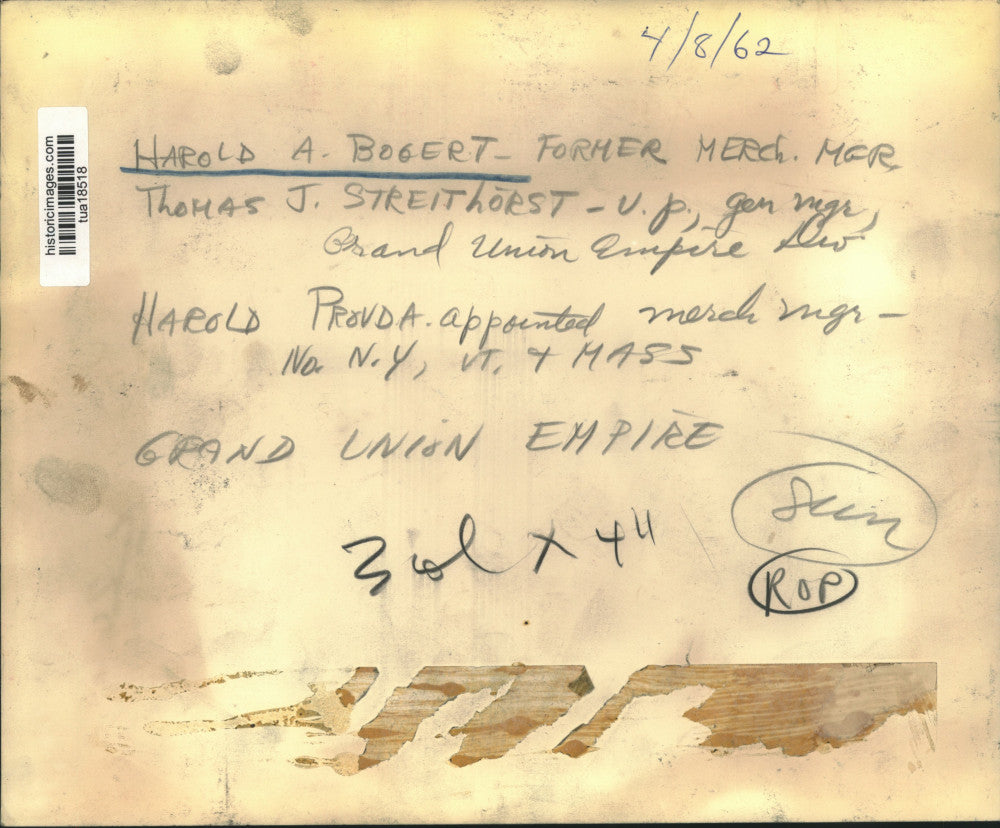 4/8/62
historicimages.com
tua18518
HAROLD A. BOGERT - FORMER MERCH. MGR.
THOMAS J. STREITHORST - V. p., gen mgr,
Grand Union Empire Div
HAROLD PROVDA. appointed merch mgr -
No. N.Y, VT. + MASS
GRAND UNION EMPIRE
Sun
3 col x 4"
ROP